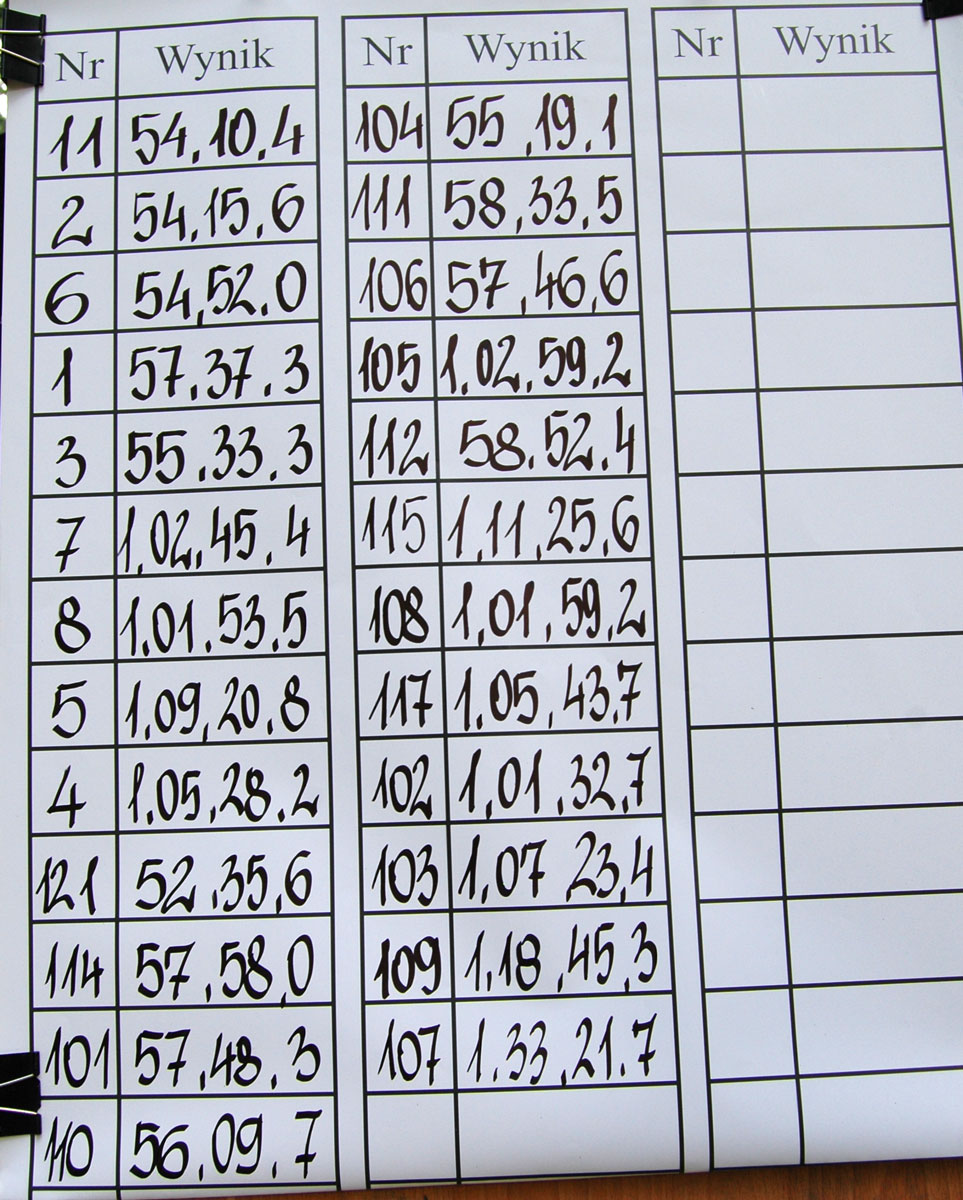 Nr Wynik
11 54.10.4
2 54.15.6
6 54.52.0
1 57.37.3
3 55.33.3
7 1.02.45.4
8 1.01.53.5
5 1.09.20.8
4 1.05.28.2
121 52.35,6
114 57.58.0
101 57.48.3
110 56.09.7
Nr Wynik
104 55,19.1
111 58,33,5
106 57,46,6
105 1.02.59.2
112 58.52.4
115 1,11,25,6
108 1,01.59.2
117 1.05,43.7
102 1,01.32,7
103 1,07 23,4
109 1.18,45,3
107 1.33,21.7
Nr Wynik